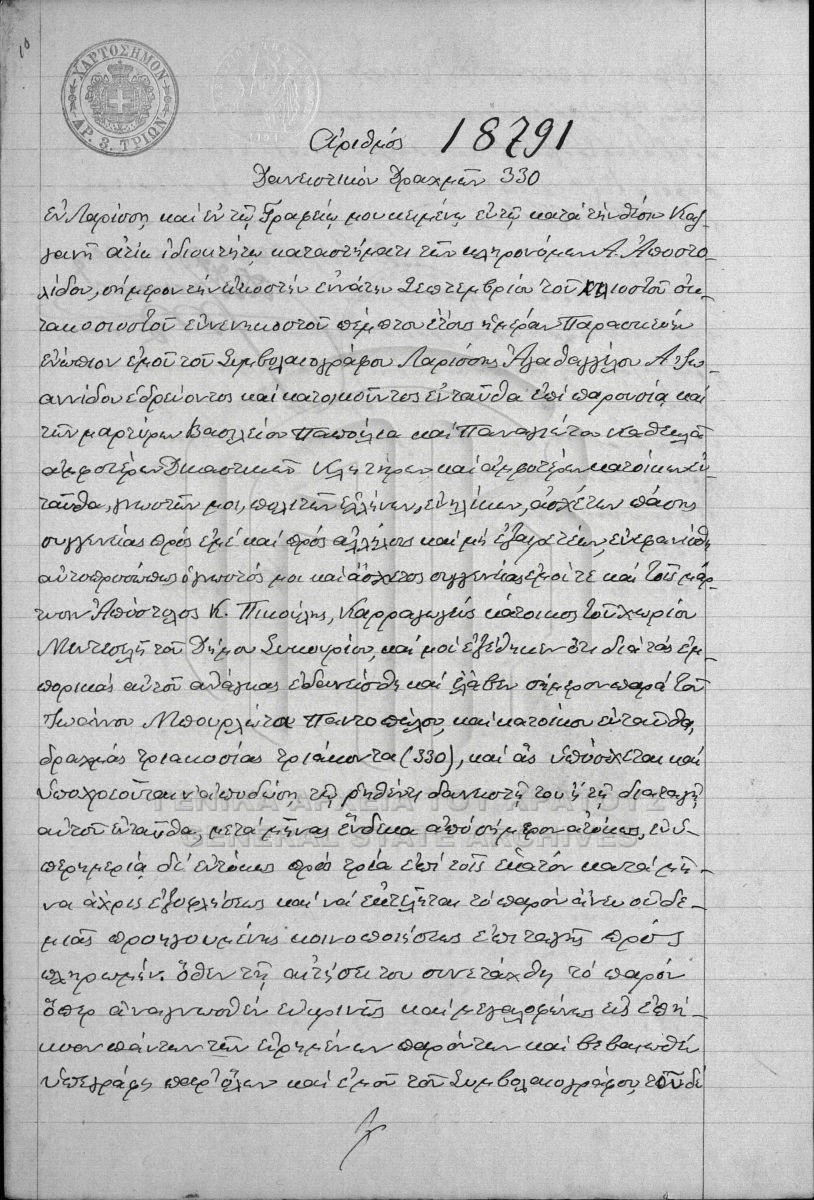 ΧΑΡΤΟΣΗΜΟΝ
ΔΡ. 3. ΤΡΙΩΝ
Ἀριθμός 18791
Δανειστικόν Δραχμῶν 330
Ἐν Λαρίσση καί ἐν τῷ Γραφείῳ μου κειμένῳ ἐν τῇ κατά τήν θέσιν
ἰδιοκτήτῳ καταστήματι τῶν κληρονόμων Α. Ἀποστο-
λίδου, σήμερον τήν εἰκοστήν ἐνάτην Σεπτεμβρίου τοῦ χιλιοστοῦ ὀκ-
τακοσιοστοῦ ἐνενηκοστοῦ πέμπτου ἔτους ἡμέραν Παρασκευήν
ἐνώπιον ἐμοῦ τοῦ Συμβολαιογράφου Λαρίσσης Ἀγαθαγγέλου Α. Ἰω-
αννίδου ἑδρεύοντος καί κατοικοῦντος ἐνταῦθα ἐπί παρουσίᾳ καί
τῶν μαρτύρων Βασιλείου Παπούλια καί Παναγιώτου
ἀμφοτέρων Δικαστικῶν Κλητήρων καί ἀμφοτέρων κατοίκων ἐν-
ταῦθα, γνωστῶν μοι, πολιτῶν ἑλλήνων, ἐνηλίκων, ἀσχέτων πάσης
συγγενείας πρός ἐμέ καί πρός ἀλλήλους καί μή ἐξαιρετέων, ἐνεφανίσθη
αὐτοπροσώπως ὁ γνωστός μοι καί ἄσχετος συγγενείας ἐμοί τε καί τοῖς μάρ-
τυσιν Ἀπόστολος Κ. Πικούλης, Καρραγωγεύς κάτοικος τοῦ χωρίου
τοῦ Δήμου Συκουρίου, καί μοί ἐξέθηκεν ὅτι διά τάς ἐμ-
πορικάς αὐτοῦ ἀνάγκας ἐδανείσθη καί ἔλαβεν σήμερον παρά τοῦ
Ἰωάννου Μπουρλιώτου Παντοπώλου, καί κατοίκου ἐνταῦθα,
δραχμάς τριακοσίας τριάκοντα (330), καί ἅς ὑπόσχεται καί
ὑποχρεοῦται ν' ἀποδώσῃ τῷ ῥηθέντι δανειστῇ του ἤ τῇ διαταγῇ
αὐτοῦ ἐνταῦθα, μετά μῆνας ἕνδεκα ἀπό σήμερον ἀτόκως, ἐν ὑ-
περημερίᾳ δέ ἐντόκως πρός τρία ἐπί τοῖς ἑκατόν κατά μῆ-
να ἄχρις ἐξοφλήσεως καί νά ἐκτελῆται τό παρόν ἄνευ οὐδε-
μιᾶς προηγουμένης κοινοποιήσεως ἐπιταγῆς πρός
πληρωμήν. Ὅθεν τῇ αἰτήσει του συνετάχθη τό παρόν
ὅπερ ἀναγνωσθέν εὐκρινῶς καί μεγαλοφώνως εἰς ἐπή-
κοον πάντων τῶν εἰρημένων παρόντων καί βεβαιωθέν
ὑπεγράφη παρ' ὅλων καί ἐμοῦ τοῦ Συμβολαιογράφου, τοῦ δέ
ΓΕΝΙΚΑ ΑΡΧΕΙΑ ΤΟΥ ΚΡΑΤΟΥΣ
GENERAL STATE ARCHIVES